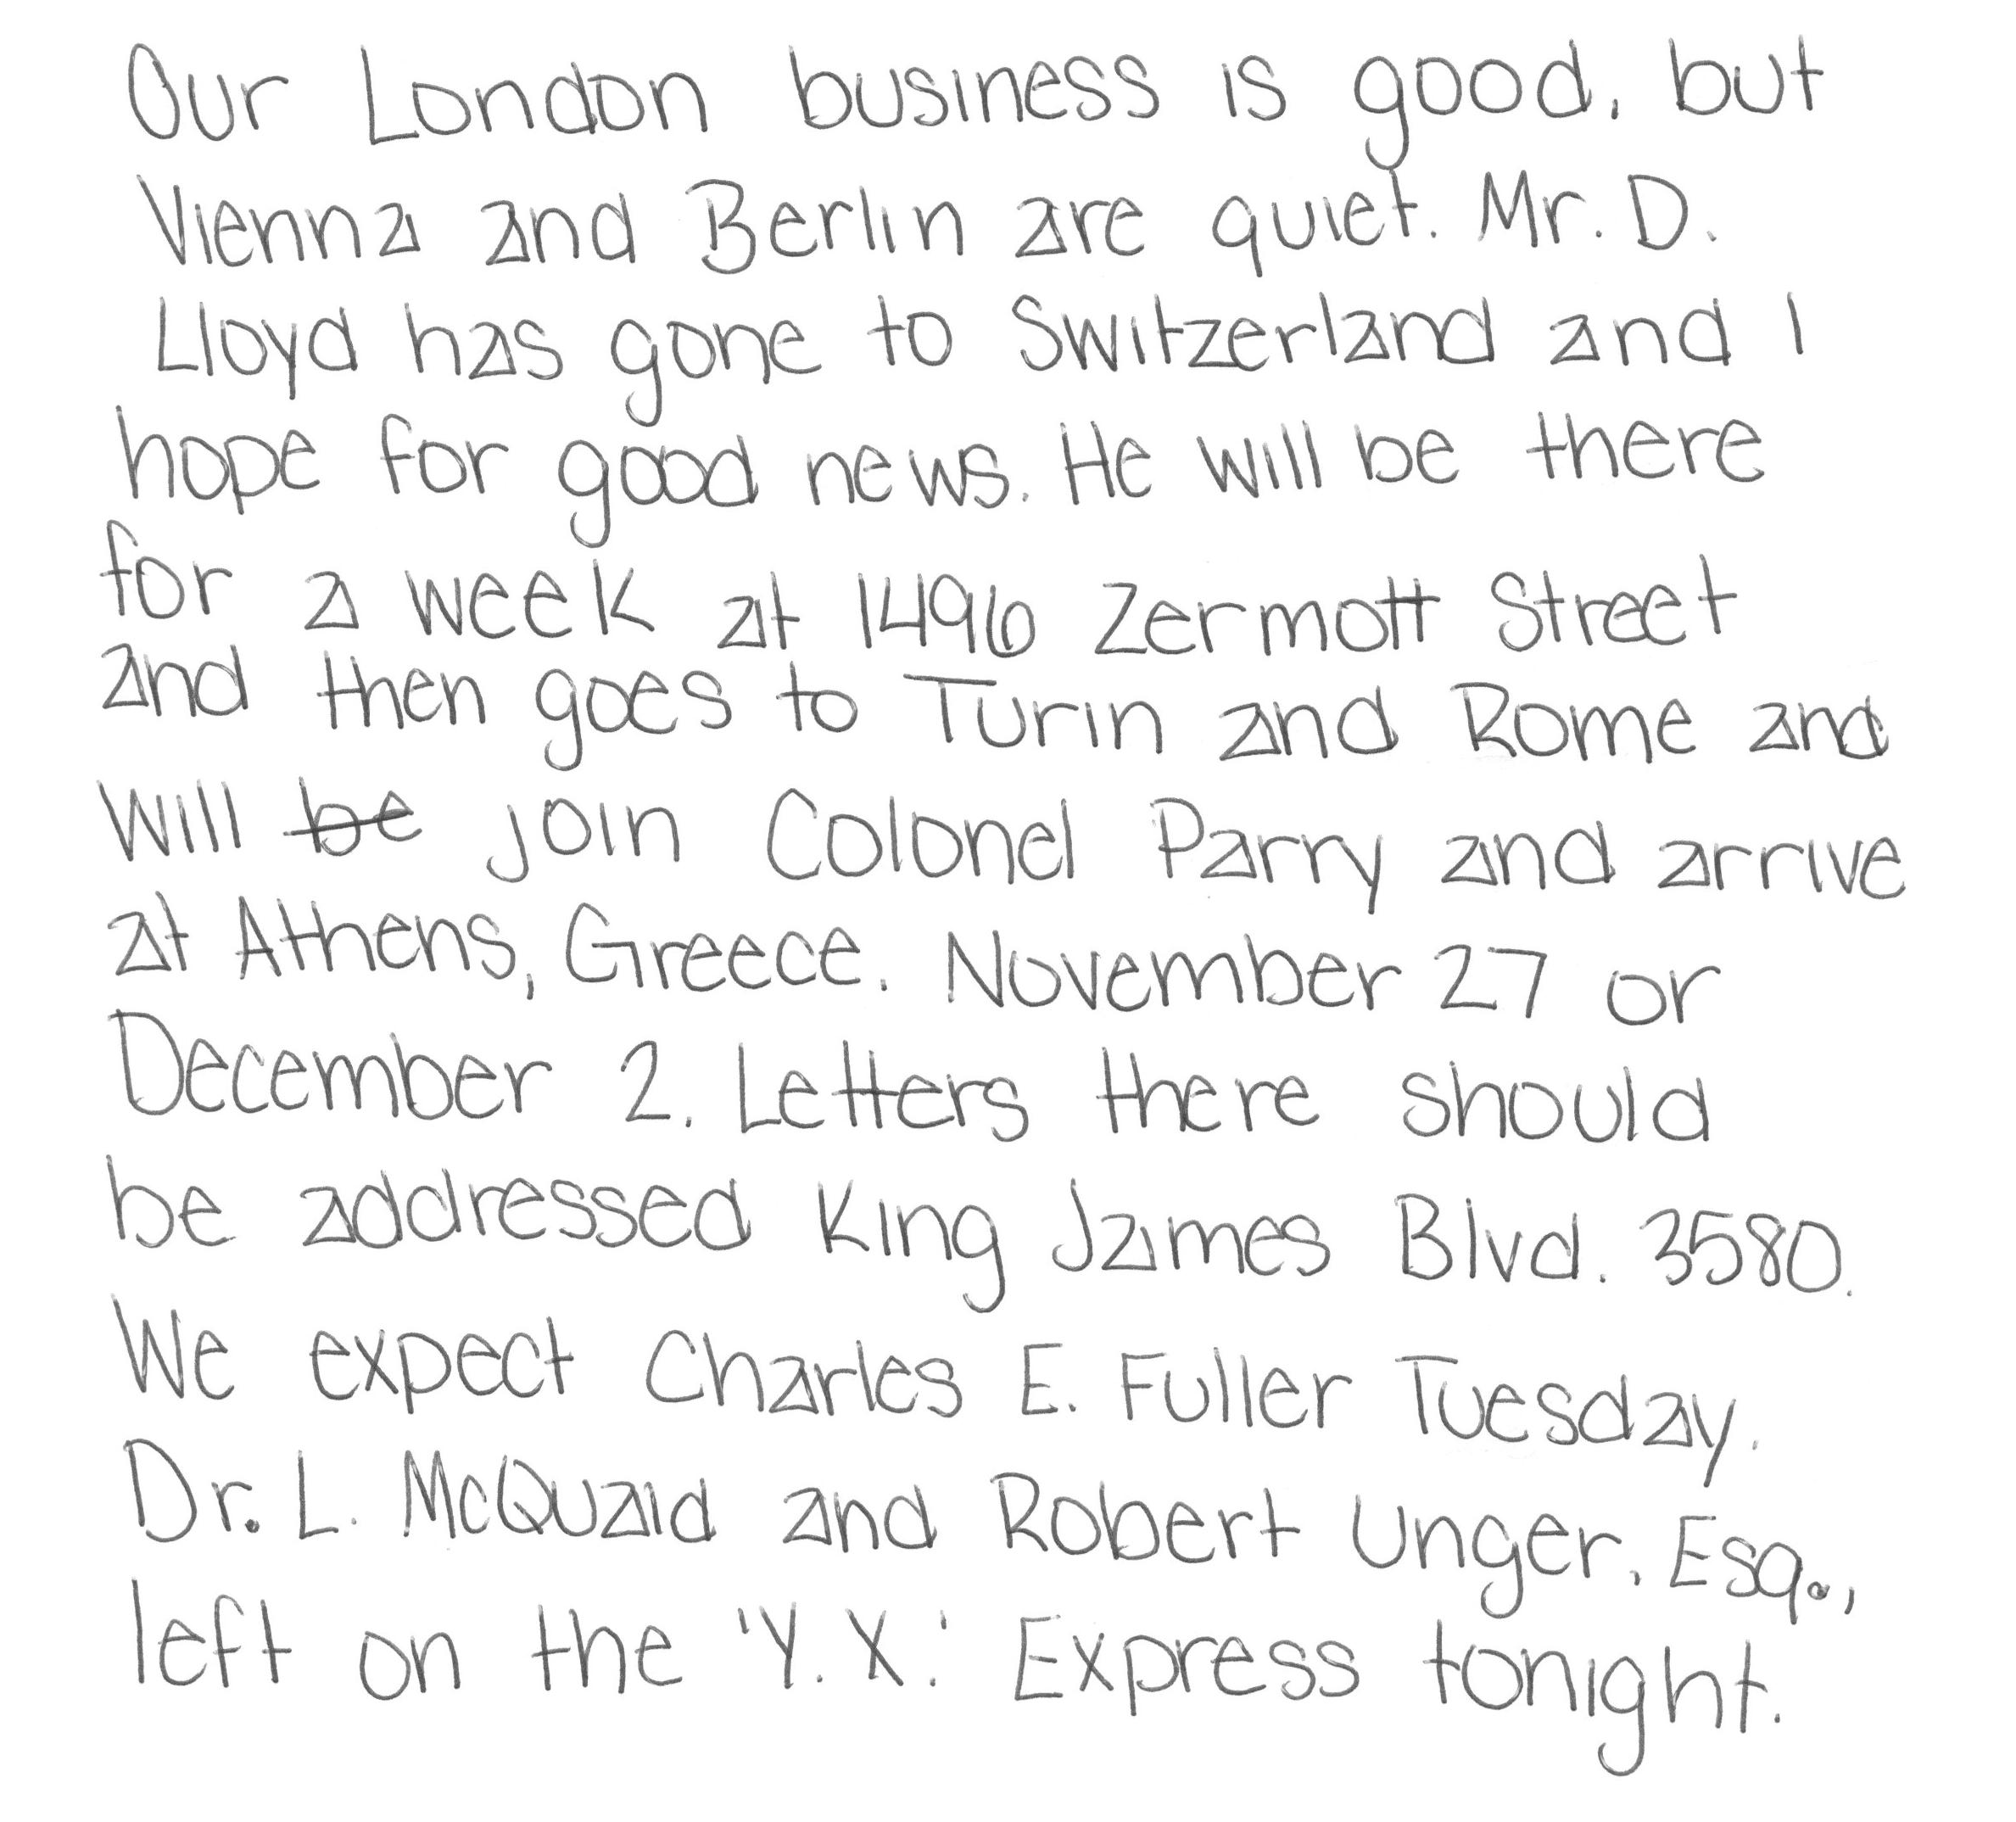 Our London business is good, but
Vienna and Berlin are quiet. Mr. D.
Lloyd has gone to Switzerland and I
hope for good news. He will be there
for a week at 1496 Zermott Street
and then goes to Turin and Rome and
will be join Colonel Parry and arrive
at Athens, Greece. November 27 or
December 2. Letters there should
be addressed King James Blvd. 3580.
We expect Charles E. Fuller Tuesday.
Dr. L. McQuaid and Robert Unger, Esq.,
left on the 'Y.X.' Express tonight.